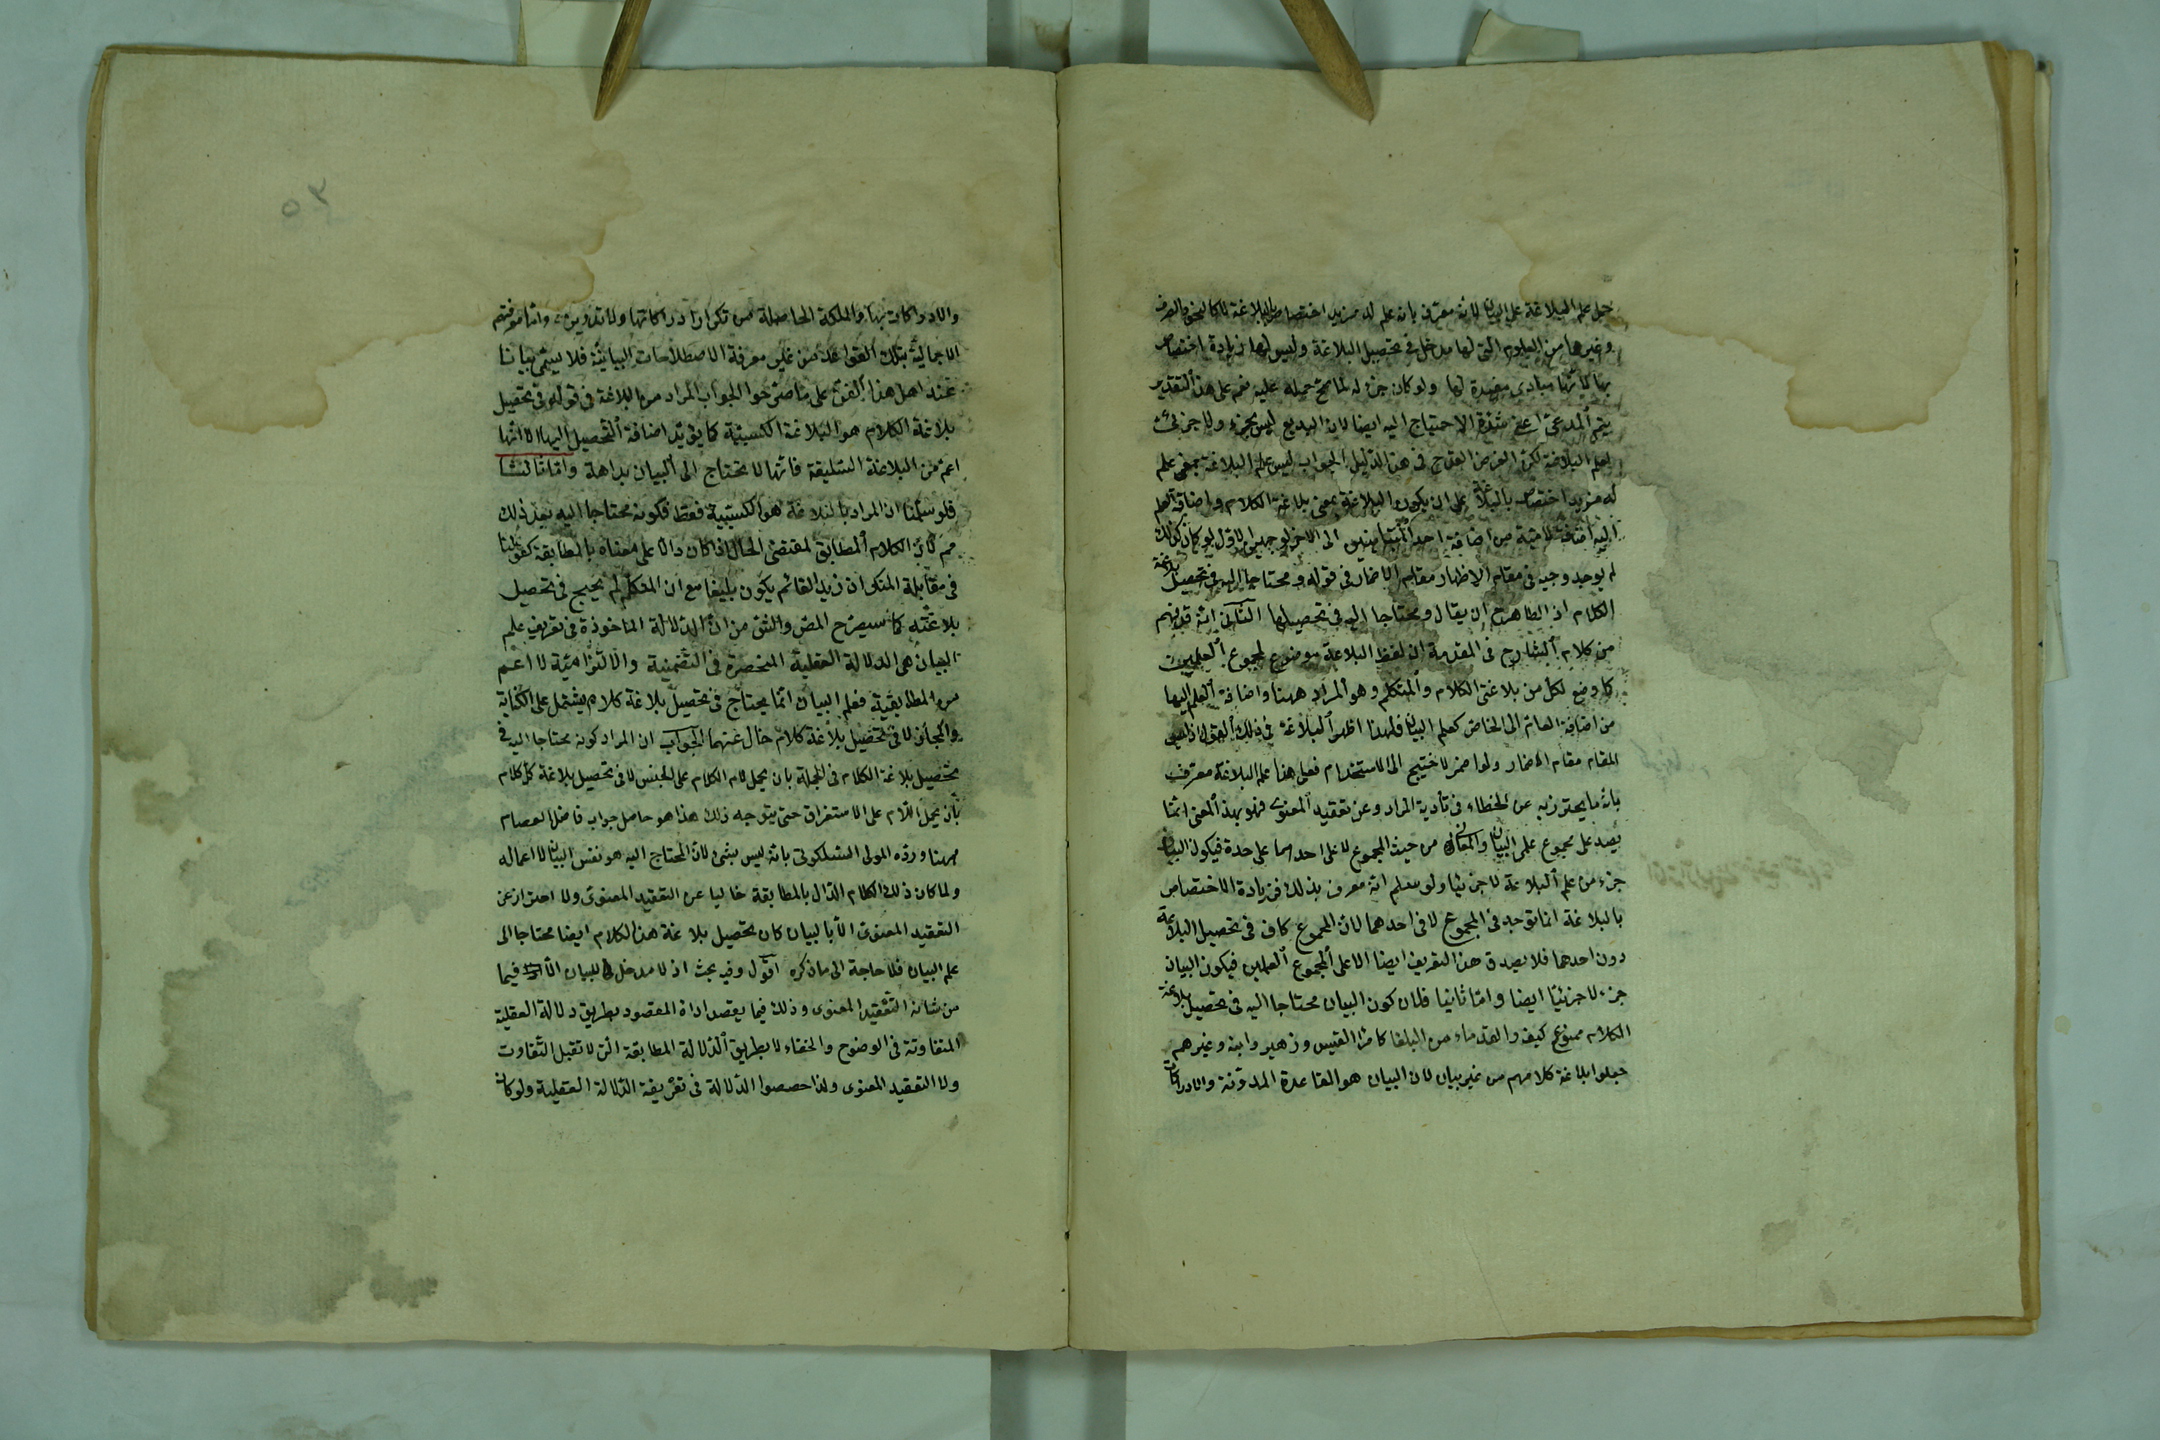 حمل علم البلاغة على البيان لانه معرف بانه علم له مزيد اختصاص بالبلاغة لا كالنحو والصرف
وغيرها من العلوم التى لها مدخل فى تحصيل البلاغة وليس لها زيادة اختصاص
بها لانها مبادى مفيدة لها ولو كان جزء له لما صح حمله عليه نعم على هذا التقدير
يتم المدعى اعنى شدة الاحتياج اليه ايضا لان البديع ليس بجزء ولا جزئى
لعلم البلاغة لكن الغرض القدح فى هذا الدليل الجواب ليس علم البلاغة بمعنى علم
له مزيد اختصاص بالبلاغة على ان يكون البلاغة بمعنى بلاغة الكلام واضافة العلم
اليه اضافة لامية من اضافة احد المتباينين الى الاخر لوجهين الاول لو كان كذلك
لم يوجد وجه فى مقام الاظهار مقام الاضمار فى قوله ومحتاجا اليه فى تحصيل بلاغة
الكلام اذ الظاهر ان يقال ومحتاجا اليه فى تحصيلها الثانى انه قد فهم
من كلام الشارح فى المقدمة ان لفظ البلاغة موضوع لمجموع العلمين
كما وضع لكل من بلاغتى الكلام والمتكلم وهو المراد ههنا واضافة العلم اليها
من اضافة العام الى الخاص كعلم البيان فلهذا اظهر البلاغة فى ذلك القول اذ ليس
المقام مقام الاضمار ولو اضمر لاحتيج الى الاستخدام فعلى هذا علم البلاغة معرف
بانه ما يحترز به عن الخطاء فى تأدية المراد وعن تعقيد المعنوى فهو بهذا المعنى انما
يصدق على مجموع علمى البيان والمعانى من حيث المجموع لا على احدهما على حدة فيكون البيان
جزء من علم البلاغة لا جزئيا ولو سلم انه معرف بذلك فزيادة الاختصاص
بالبلاغة انما توجد فى المجموع لا فى احدهما لان المجموع كاف فى تحصيل البلاغة
دون احدهما فلا يصدق هذا التعريف ايضا الا على المجموع العلمين فيكون البيان
جزء لا جزئيا ايضا واما ثانيا فلان كون البيان محتاجا اليه فى تحصيل بلاغة
الكلام ممنوع كيف والقدماء من البلغا كامرا القيس وزهير وابنه وغيرهم
حصلوا بلاغة كلامهم من غير بيان لان البيان هو القاعدة المدونة والادراكات
والادراكات بها والملكة الحاصلة من تكرار ادراكاتها ولا تدوين واما معرفتهم
الاجمالية بتلك القواعد من غير معرفة الاصطلاحات البيانية فلا يسمى بيانا
عند اهل هذا الفن على ما صرحوا الجواب المراد من البلاغة فى قوله فى تحصيل
بلاغة الكلام هو البلاغة الكسبية كما يؤيد اضافة التحصيل اليها لا انها
اعم من البلاغة السليقة فانها لا تحتاج الى البيان بداهة واما ثالثا
فلو سلمنا ان المراد بالبلاغة هو الكسبية فقط فكونه محتاجا اليه بعد ذلك
مم لان الكلام المطابق لمقتضى الحال اذا كان دالا على معناه بالمطابقة كقولنا
فى مقابلة المنكر ان زيدا لقائم يكون بليغا مع ان المتكلم لم يحتج فى تحصيل
بلاغته كما سيصرح المص والش من ان الدلالة الماخوذة فى تعريف علم
البيان هى الدلالة العقلية المنحصرة فى التضمنية والالتزامية لا اعم
من المطابقية فعلم البيان انما يحتاج فى تحصيل بلاغة كلام يشتمل على الكناية
والمجاز لا فى تحصيل بلاغة كلام خال عنهما الجواب ان المراد كونه محتاجا اليه فى
تحصيل بلاغة الكلام فى الجملة بان يحمل لام الكلام على الجنس لا فى تحصيل بلاغة كل كلام
بان يحمل اللام على الاستغراق حتى يتوجه ذلك هذا هو حاصل جواب فاضل العصام
ههنا ورده المولى السيلكوتى بانه ليس بشئ لان المحتاج اليه هو نفس البيان لا اعماله
ولما كان ذلك الكلام الدال بالمطابقة خاليا عن التعقيد المعنوى ولا احتراز عن
التعقيد المعنوى الا بالبيان كان تحصيل بلاغة هذا الكلام ايضا محتاجا الى
علم البيان فلا حاجة الى ما ذكره اقول وفيه بحث اذ لا مدخل للبيان الا فيما
من شانه التعقيد المعنوى وذلك فيما يقصد اداة المقصود بطريق دلالة العقلية
المتفاوتة فى الوضوح والخفاء لا بطريق الدلالة المطابقة التى لا تقبل التفاوت
ولا التعقيد المعنوى ولذا خصصوا الدلالة فى تعريفه الدلالة العقلية ولو كان